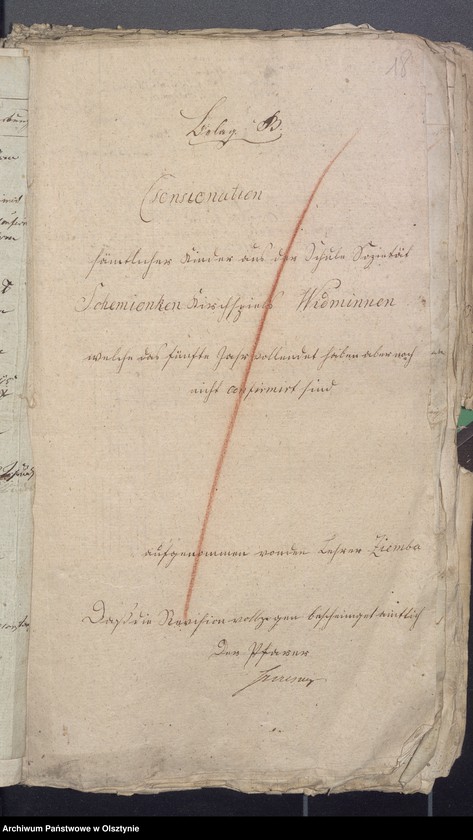 18
Belag B.
Consignation
sämtlicher Kinder aus der Schule Sozietät
Schemionken Kirchspiels Widminnen
welche das fünfte Jahr vollendet haben aber noch
nicht confirmirt sind
aufgenommen von den Lehrer Ziemba
Daß die Revision vollzogen bescheiniget amtlich
Der Pfarrer
Archiwum Państwowe w Olsztynie